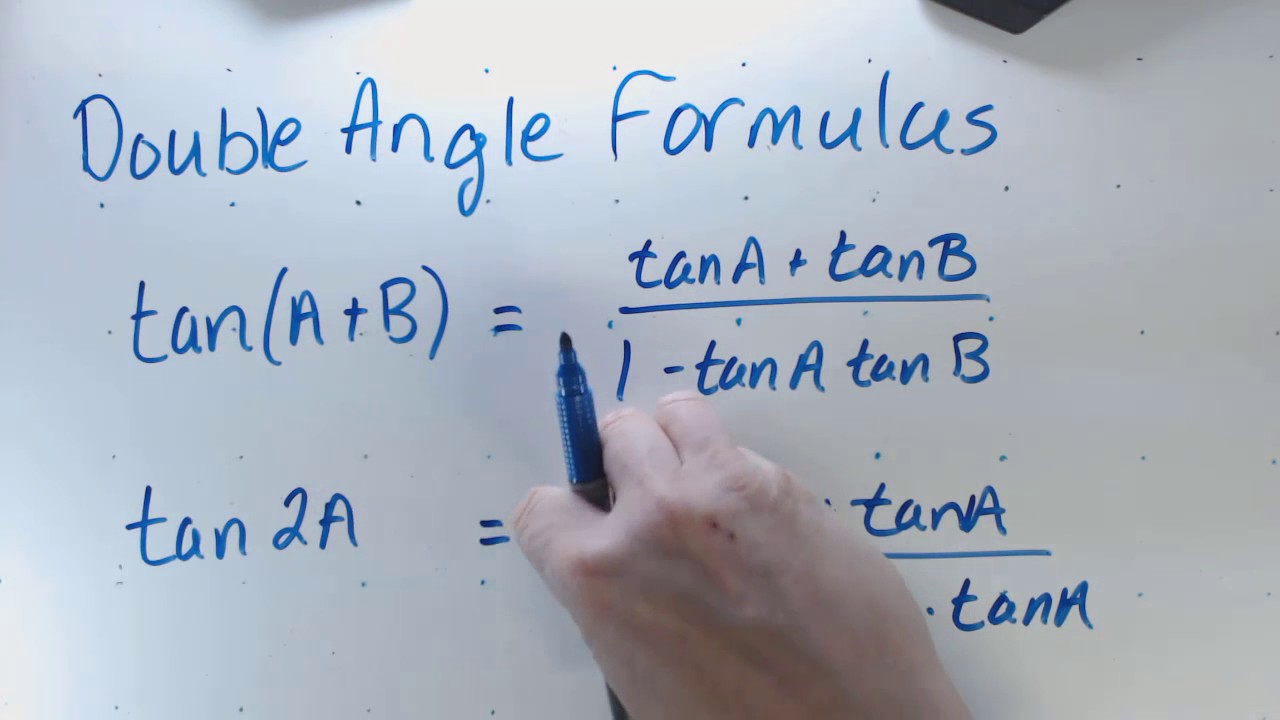 Double Angle Formulas
tan(A+B) = tanA + tanB
1 - tanA tan B
tan 2A = · tanA
· tanA